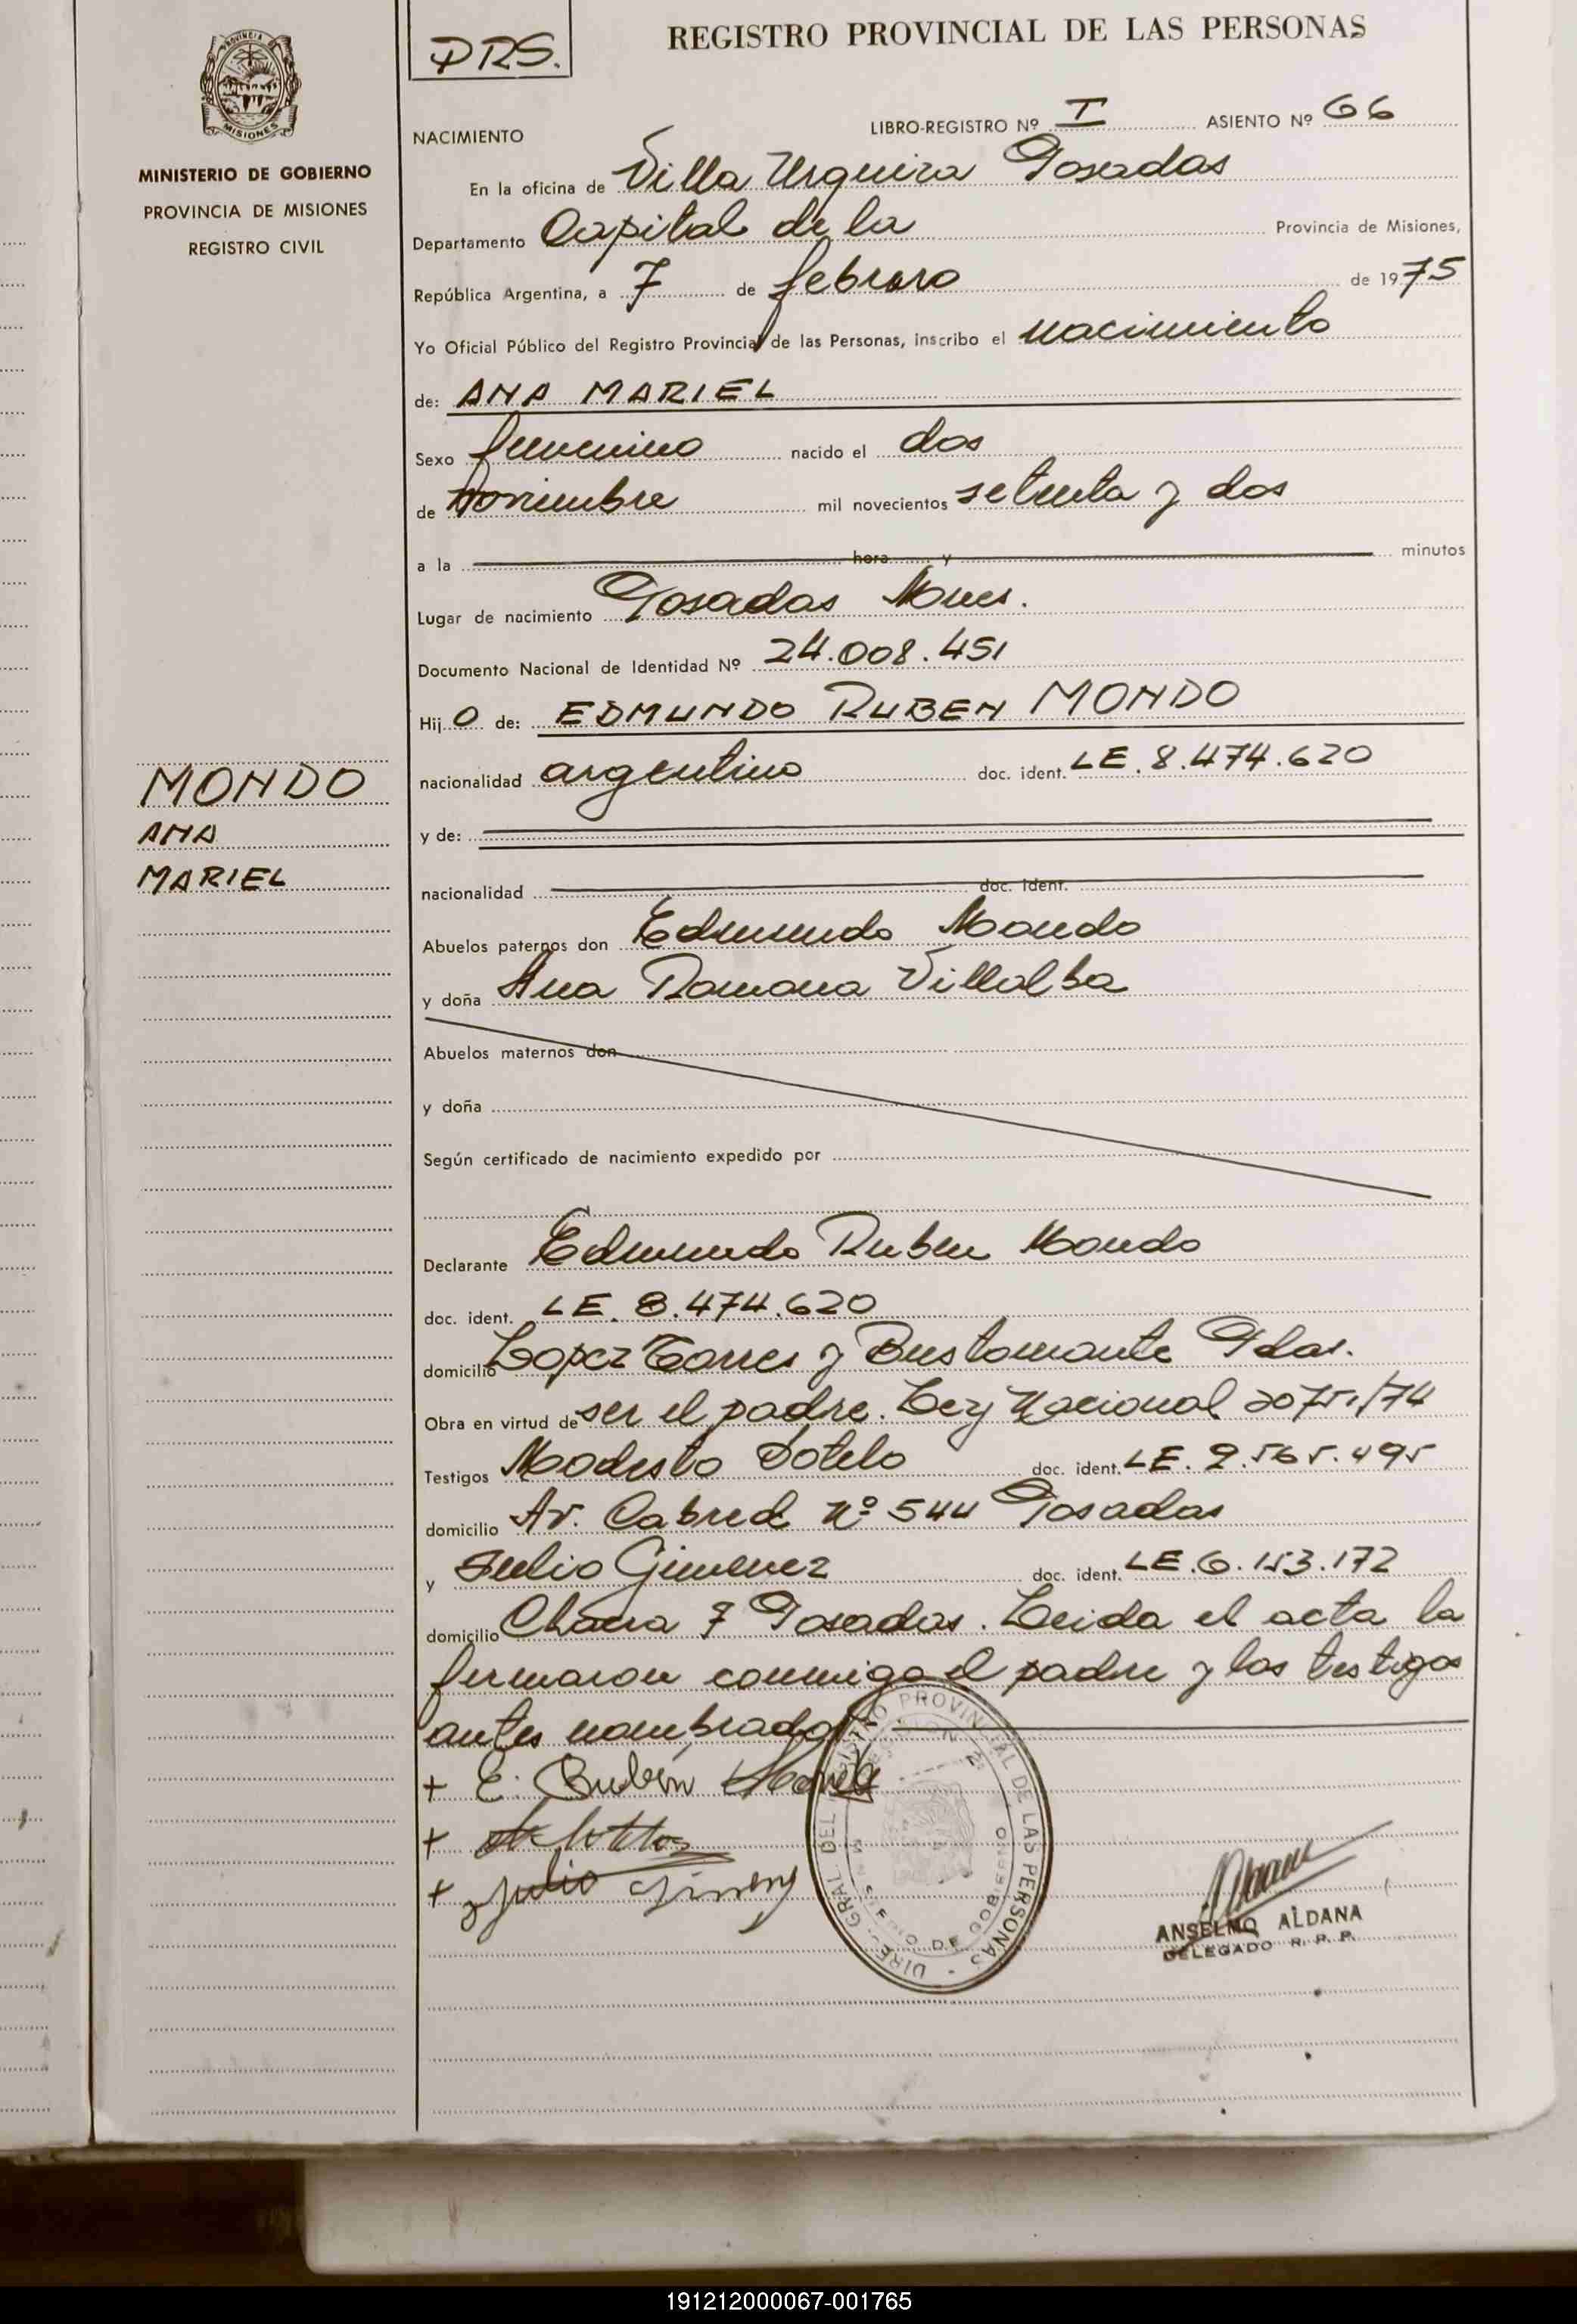 PROVINCIA
MISIONES
MINISTERIO DE GOBIERNO
PROVINCIA DE MISIONES
REGISTRO CIVIL
MONDO
ANA
MARIEL
PRS.
REGISTRO PROVINCIAL DE LAS PERSONAS
NACIMIENTO
LIBRO-REGISTRO Nº I ASIENTO Nº 66
En la oficina de Villa Urquiza Posadas
Departamento Capital de la Provincia de Misiones,
República Argentina, a 7 de febrero de 1975
Yo Oficial Público del Registro Provincial de las Personas, inscribo el nacimiento
de: ANA MARIEL
Sexo femenino nacido el dos
de noviembre mil novecientos setenta y dos
a la hora y minutos
Lugar de nacimiento Posadas Mnes.
Documento Nacional de Identidad Nº 24.008.451
Hijo de: EDMUNDO RUBEN MONDO
nacionalidad argentino doc. ident. LE. 8.474.620
y de:
nacionalidad doc. ident.
Abuelos paternos don Edmundo Mondo
y doña Ana Ramona Villalba
Abuelos maternos don
y doña
Según certificado de nacimiento expedido por
Declarante Edmundo Ruben Mondo
doc. ident. LE. 8.474.620
domicilio Lopez Torres y Bustamante Pdas.
Obra en virtud de ser el padre. Ley Nacional 20751/74
Testigos Modesto Sotelo doc. ident. LE. 9.565.495
domicilio Av. Cabred Nº 544 Posadas
y Julio Gimenez doc. ident. LE. 6.153.172
domicilio Chacra 7 Posadas. Leida el acta la
firmaron conmigo el padre y los testigos
antes nombrados
+ E. Rubén Mondo
+
+ Julio Gimenez
DIRE. GRAL DEL REGISTRO PROVINCIAL DE LAS PERSONAS
MINISTERIO DE GOBIERNO
ANSELMO ALDANA
DELEGADO R. P. P.
191212000067-001765